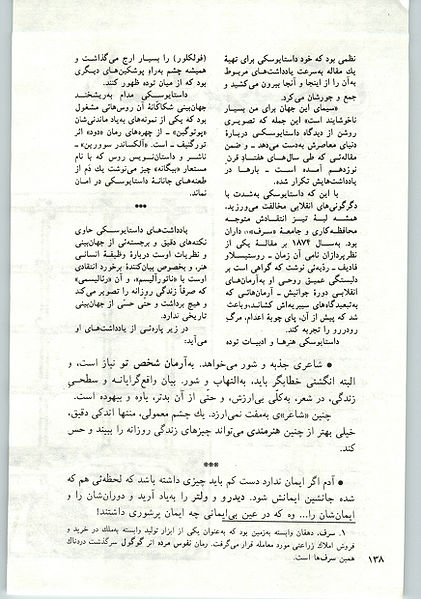 نظمی بود که خود داستایوسکی برای تهیهٔ
یك مقاله به‌سرعت یادداشت‌های مربوط
به‌آن را از اینجا و آنجا بیرون می‌کشید و
جمع و جورشان می‌کرد.
«سیمای این جهان برای من بسیار
ناخوشایند است» این جمله که تصویری
روشن از دیدگاه داستایوسکی دربارهٔ
دنیای معاصرش به‌دست می‌دهد ـ و ضمن
مقاله‌ئی که طی سال‌های هفتادِ قرن
نوزدهم آمده است ـ بارها در
یادداشت‌هایش تکرار شده.
با این که داستایوسکی به‌شدت با
دگرگونی‌های انقلابی مخالفت می‌ورزید،
همشه لبهٔ تیز انتقادش متوجه
محافظه‌کاری و جامعهٔ «سرف»۱ داران
بود. به‌سال ۱۸۷۴ بر مقالهٔ یکی از
نظرپردازان نامی آن زمان ـ روستیسلاو
فادیف ـ ردّیه‌ئی نوشت که گواهی است بر
دلبستگی عمیق روحی او به‌آرمان‌های
انقلابی دورهٔ جوانیش ـ آرمان‌هائی که
به‌تبعیدگاه‌های سیبریه‌اش کشاند، وباعث
شد که پیش از آن، پای چوبهٔ اعدام، مرگِ
رودررو را تجربه کند.
داستایوسکی هنرها و ادبیات توده
(فولکلور) را بسیار ارج می‌گذاشت و
همیشه چشم به‌راهِ پوشکین‌های دیگری
بود که از میان توده ظهور کنند.
داستایوسکی مدام به‌ریشخند
جهان‌بینی شکاکّانهٔ آن روس‌هائی مشغول
بود که یکی از نمونه‌های به‌یاد ماندنی‌شان
«پوتوگین» ـ از چهره‌های رمان «دود» اثر
تورگنیف ـ است. «آلکساندر سوورین» ـ
ناشر و داستان‌نویس روس که با نام
مستعار «بیگانه» چیز می‌نوشت یك دَم از
طعنه‌های جانانهٔ داستایوسکی در امان
نماند.
***
یادداشت‌های داستایوسکی حاوی
نکته‌های دقیق و برجسته‌ئی از جهان‌بینی
و نظریات اوست دربارهٔ وظیفهٔ انسانی
هنر، و بخصوص بیان‌کنندهٔ برخورد انتقادی
اوست با «ناتورآلیسم»، و آن «رئالیسمی»
که صرفاً زندگی روزانه را تصویر می‌کند
و هیچ برداشت و حتی حسّی از جهان‌بینی
تاریخی ندارد.
در زیر پاره‌ئی از یادداشت‌های او
می‌آید:
● شاعری جذبه و شور می‌خواهد. به‌آرمان شخص تو نیاز است، و
البته انگشتی خطابگر باید، به‌التهاب و شور. بیان واقع‌گرایانه و سطحی
زندگی، در شعر، به‌کلّی بی‌ارزش، و حتّی از آن بدتر، یاوه و بیهوده است.
چنین «شاعر»ی به‌مفت نمی‌ارزد. یك چشم معمولی، منتها اندکی دقیق،
خیلی بهتر از چنین هنرمندی می‌تواند چیزهای زندگی روزانه را ببیند و حس
کند.
***
● آدم اگر ایمان ندارد دست کم باید چیزی داشته باشد که لحظه‌ئی هم که
شده جانشین ایمانش شود. دیدرو و ولتر را به‌یاد آرید و دوران‌شان را و
ایمان‌شان را... وه که در عین بی‌ایمانی چه ایمان پرشوری داشتند!
۱. سرف، دهقان وابسته به‌زمین بود که به‌عنوان یکی از ابزار تولید وابسته به‌ملك در خرید و
فروش املاك زراعتی مورد معامله قرار می‌گرفت. رمان نفوس مرده اثر گوگول سرگذشت دردناك
همین سرف‌ها است.
۱۳۸